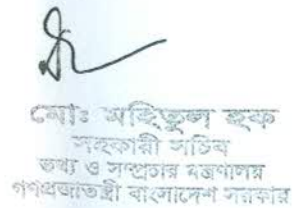 মোঃ মহিতুল হক
সহকারী সচিব
তথ্য ও সম্প্রচার মন্ত্রণালয়
গণপ্রজাতন্ত্রী বাংলাদেশ সরকার